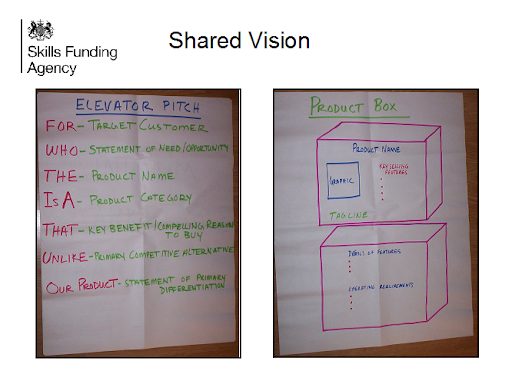 Skills Funding
Agency
Shared Vision
ELEVATOR PITCH
FOR - TARGET CUSTOMER
WHO - STATEMENT OF NEED/OPPORTUNITY
THE - PRODUCT NAME
IS A - PRODUCT CATEGORY
THAT - KEY BENEFIT/COMPELLING REASON
TO BUY
UNLIKE - PRIMARY COMPETITIVE ALTERNATIVE
OUR PRODUCT - STATEMENT OF PRIMARY
DIFFERENTIATION
PRODUCT BOX
PRODUCT NAME
GRAPHIC
KEY SELLING
FEATURES
TAGLINE
DETAILS OF FEATURES
OPERATING REQUIREMENTS